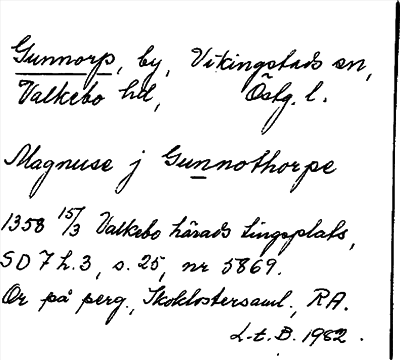 Gunnorp, by, Vikingstads sn,
Valkebo hd, Östg. l.
Magnuse j Gunnothorpe
1358 15/3 Valkebo härads tingsplats,
SD 7 h. 3, s. 25, nr 5869.
Or på perg., Skoklostersaml., RA.
L-t. B. 1982.